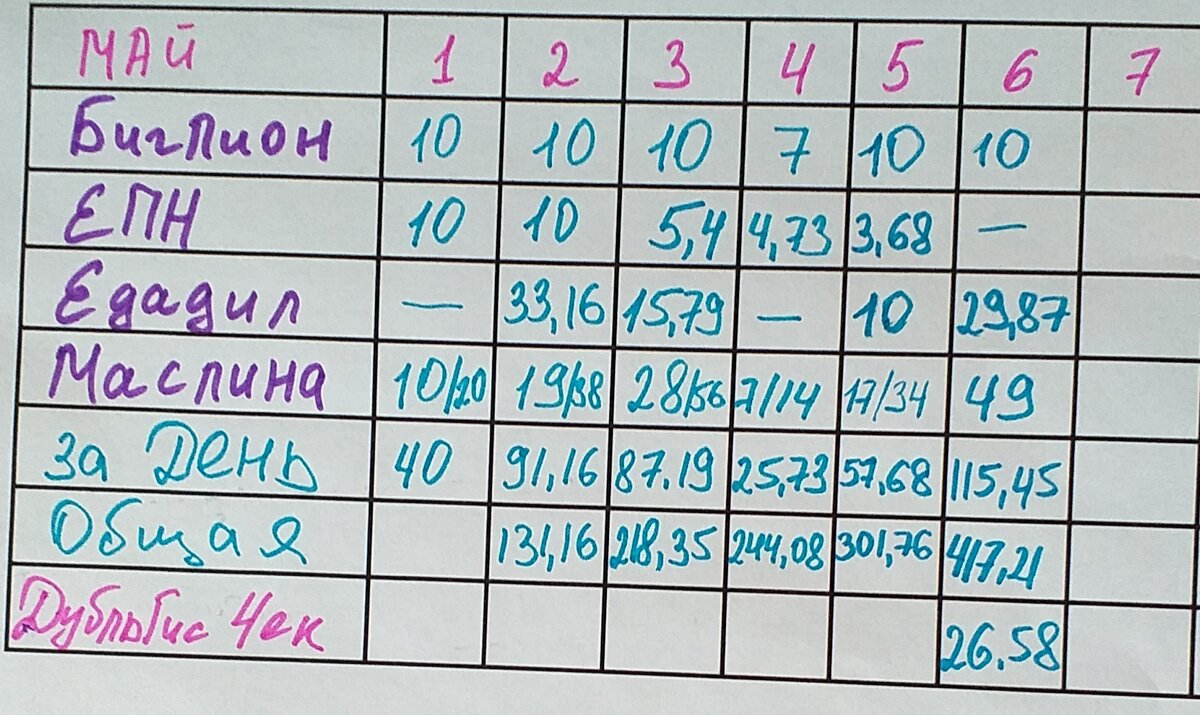 МАЙ 1 2 3 4 5 6 7
Биглион 10 10 10 7 10 10
ЕПН 10 10 5,4 4,73 3,68 —
Едадил — 33,16 15,79 — 10 29,87
Маслина 10/20 19/38 28/56 7/14 17/34 49
за День 40 91,16 87.19 25,73 57,68 115,45
Общая 131,16 218,35 244,08 301,76 417,21
ДубльГис Чек 26.58